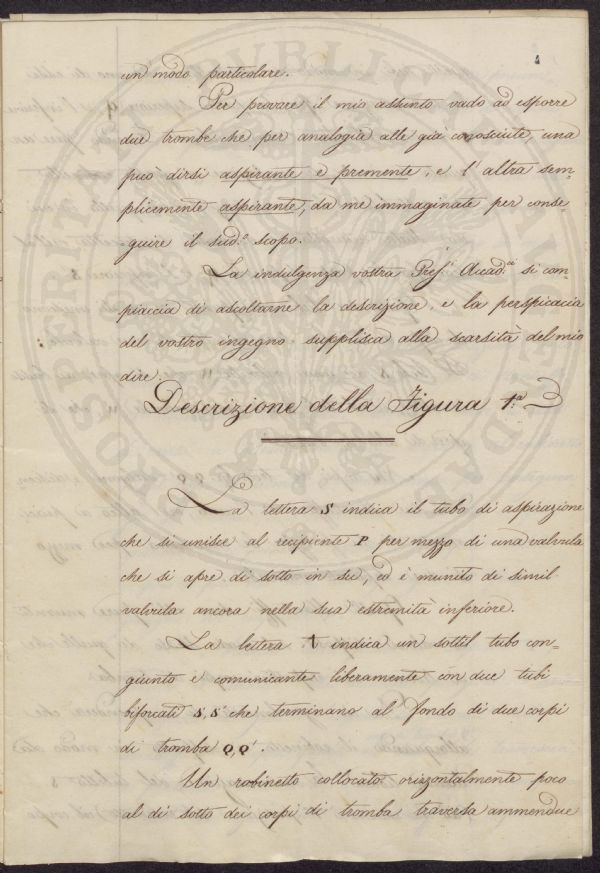 4
un modo particolare.
Per provare il mio assunto vado ad esporre
due trombe che per analogia alle già conosciute, una
può dirsi aspirante e premente, e l'altra sem=
plicemente aspirante, da me immaginate per conse=
guire il sud.º scopo.
La indulgenza vostra Pref.i Accad.ci si com
piaccia di ascoltarne la descrizione, e la perspicacia
del vostro ingegno supplisca alla scarsità del mio
dire.
Descrizione della Figura 1.a
La lettera S indica il tubo di aspirazione
che si unisce al recipiente P per mezzo di una valvula
che si apre di sotto in su, ed è munito di simil
valvula ancora nella sua estremità inferiore.
La lettera t indica un sottil tubo con=
giunto e comunicante liberamente con due tubi
biforcati s, s' che terminano al fondo di due corpi
di tromba Q, Q'.
Un robinetto collocato orizzontalmente poco
al di sotto dei corpi di tromba traversa ammendue